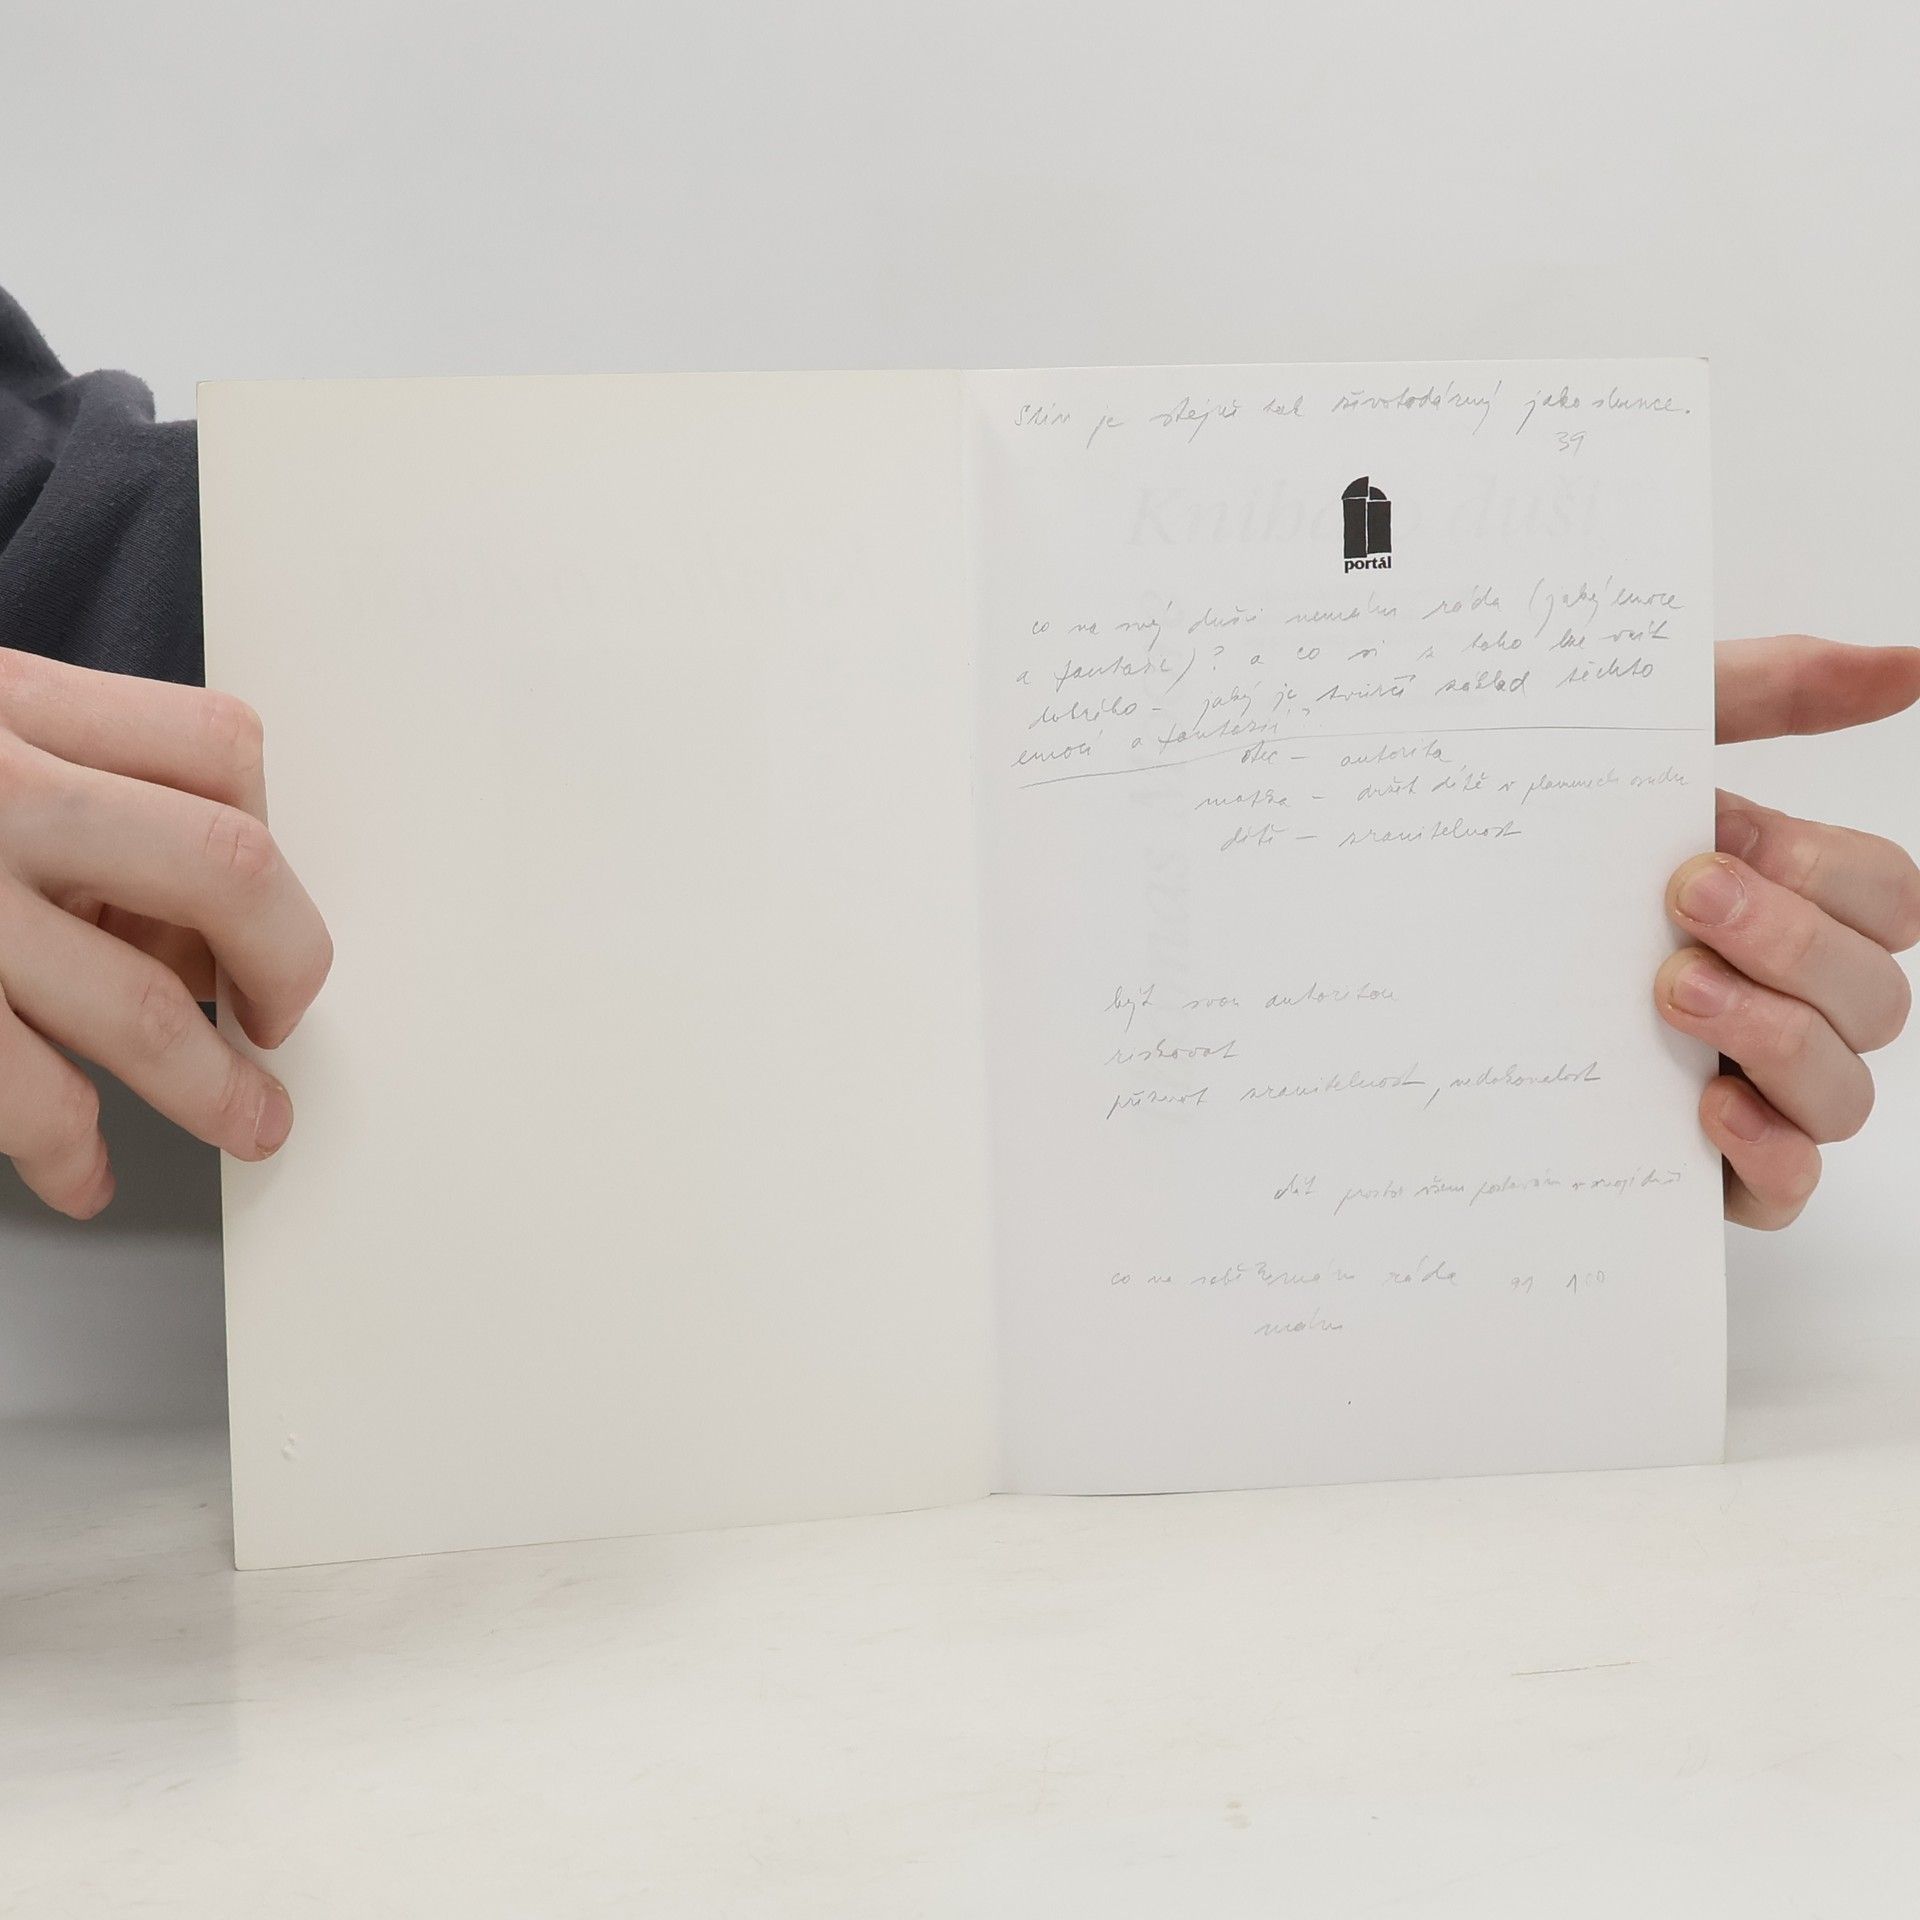 Stín je stejně tak životodárný jako slunce.
39
Kniha o duši
portál
co na mý duši nemám ráda (jaký emoce
a fantazie)? a co si z toho lze vzít
dobrého - jaký je tvůrčí základ těchto
emocí a fantazií?
otec - autorita
matka - držet dítě v plamenech osudu
dítě - zranitelnost
být svou autoritou
riskovat
přiznat zranitelnost, nedokonalost
dát prostor všem postavám v mojí duši
co na sobě nemám ráda 99 100
mám